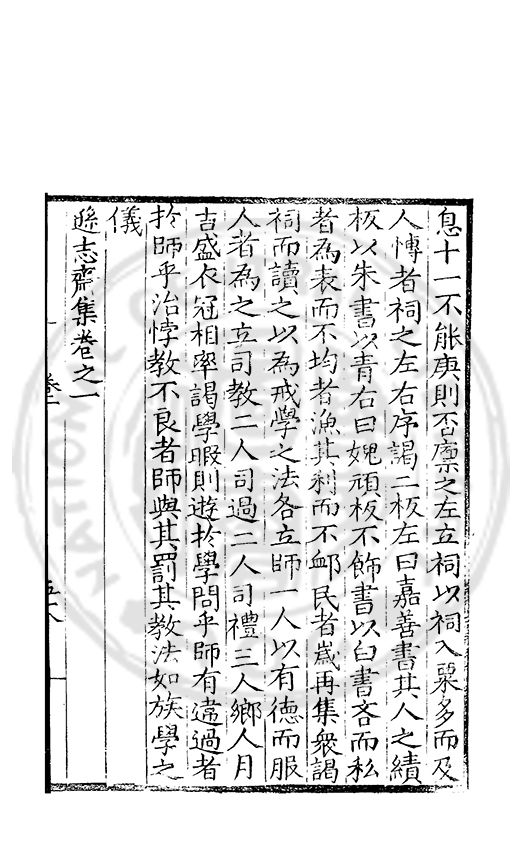 息十一不能庚則否廩之左立祠以祠入粟多而及
人愽者祠之左右序謁二板左曰嘉善書其人之績
板以朱書以青右曰媿頑板不飾書以白書吝而私
者為表而不均者漁其利而不䘏民者歲再集衆謁
祠而讀之以為戒學之法各立師一人以有德而服
人者為之立司教二人司過二人司禮三人鄉人月
吉盛衣冠相率謁學暇則遊扵學問乎師有違過者
扵師乎治悖教不良者師與其罰其教法如族學之
儀
遜志齋集卷之一
卷一
五十八